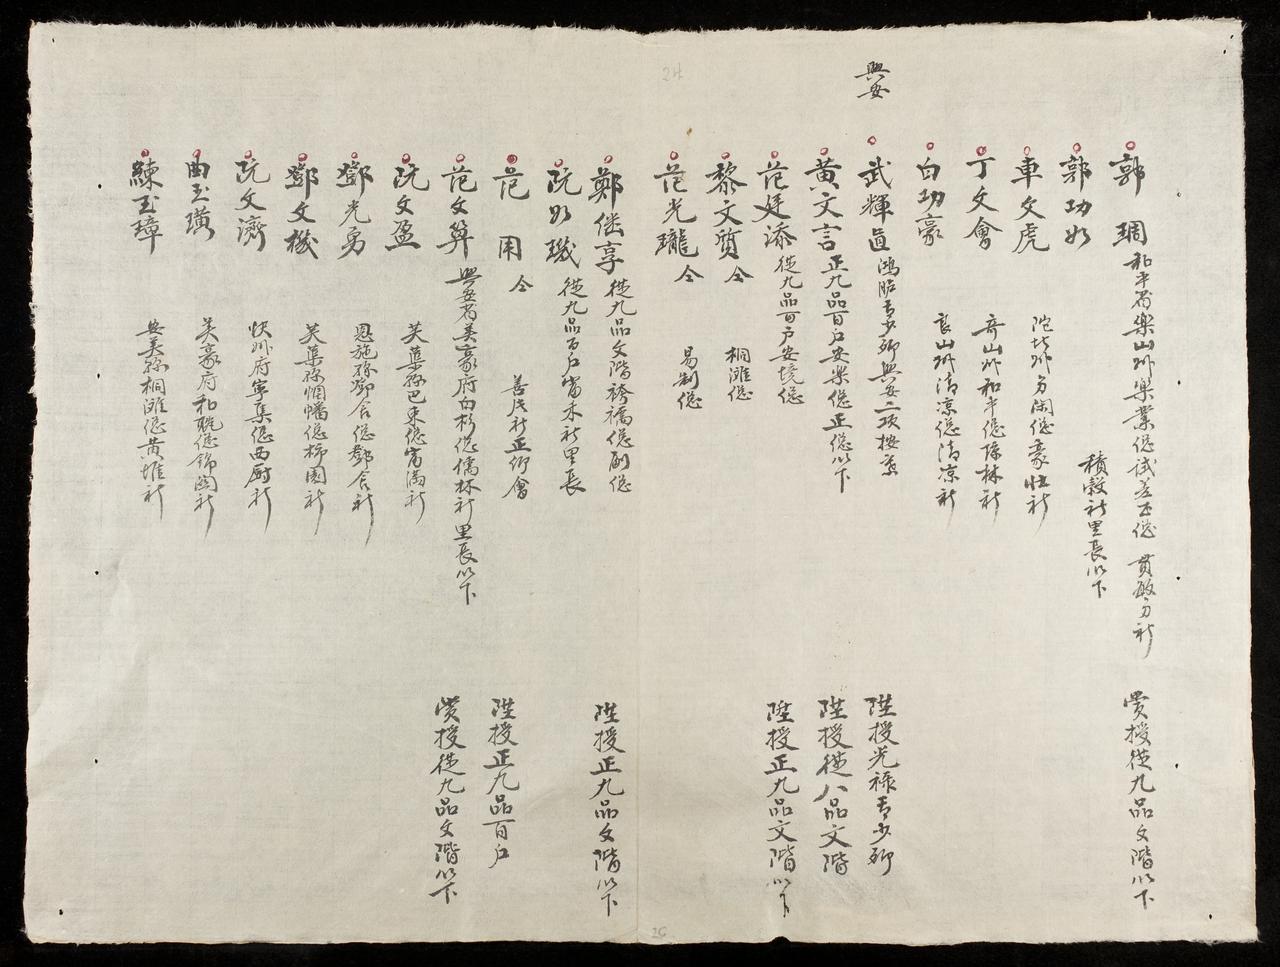 郭琱 和平省樂山州樂業總試差正總 貫敏方社 賞授從九品文階以下
郭功如 積穀社里長以下
車文虎 陀北州方閑總豪壯社
丁文會 奇山州和平總條林社
白功豪 良山州清凉總清凉社
興安
武輝 鴻臚寺少卿興安二項按 陞授光祿寺少卿
黃文言 正九品百户安樂總正總以下 陞授從八品文階
范廷添 從九品百户安境總 陞授正九品文階以下
黎文質 仝 桐灘總
范光瓏 仝 易制總
鄭偀享 從九品文階袴襦總副總 陞授正九品文階以下
阮如璣 從九品百户富禾社里長
范用 仝 善居社正鄉會 陞授正九品百户
范文算 興安省美豪府白杉總儒林社里長以下 賞授從九品文階以下
阮文盈 芙蕖縣巴東總富滿社
鄧光勇 恩施縣鄧舍總鄧舍社
鄧文機 芙蕖縣幡總柿園社
阮文濟 快州府寧集總西廚社
曲玉璜 美豪府和聰總錦関社
練玉璋 安美縣桐灘總黄堆社
24
26